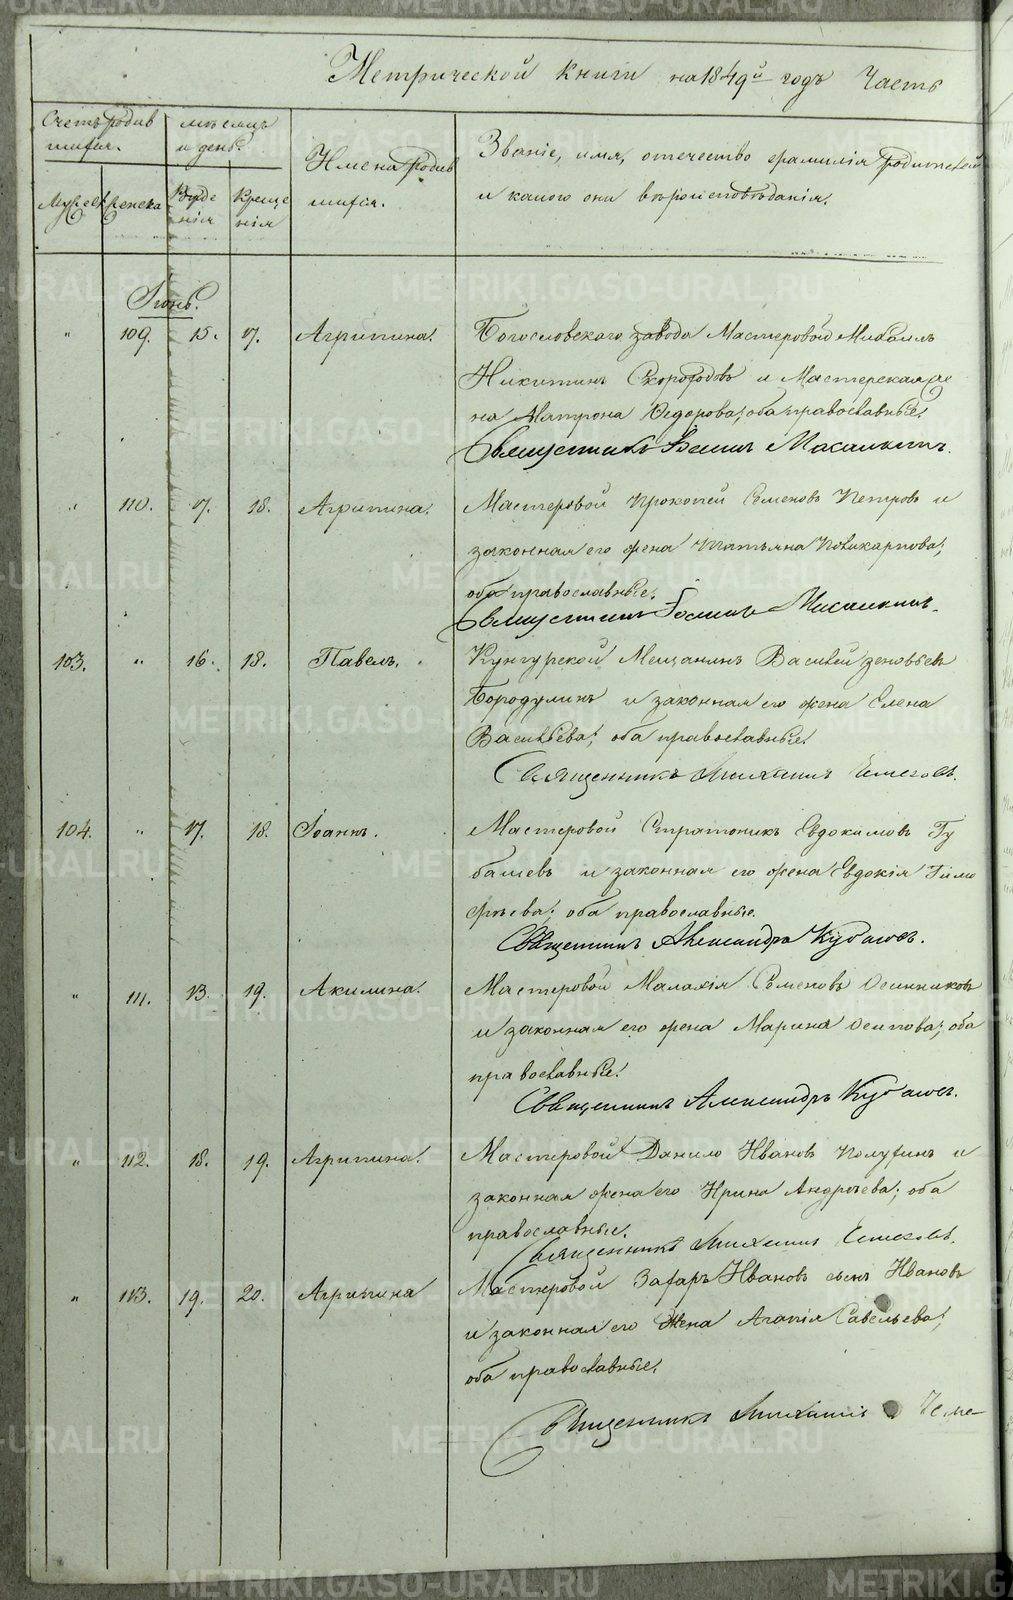 Метрической книги на 1849й годъ Часть
Счетъ родив
шихся.
мѣсяцъ
и день.
Имена родив
шихся.
Званіе, имя, отечество фамилія родителей
и какого они вѣроисповѣданія.
Мужеска
Женска
Рожде
нія
Креще
нія
Іюнь.
" 109. 15. 17. Агрипина. Богословскаго завода Мастеровой Михаилъ
Никитинъ Скороходовъ и Мастерская же
на Матрона Ѳедорова; оба православные.
Священникъ Іоаннъ
" 110. 17. 18. Агрипина. Мастеровой Прокопей Семеновъ Петровъ и
законная его жена Татьяна Поликарпова;
оба православные.
Священникъ Іоаннъ
103. " 16. 18. Павелъ. Кунгурской Мещанинъ Василей Зеновьевъ
Бородулинъ и законная его жена Елена
Васильева; оба православные.
Священникъ Михаилъ
104. " 17. 18. Іоаннъ. Мастеровой Стратоникъ Евдокимовъ Гу
башевъ и законная его жена Евдокія Тимо
фѣева; оба православные.
Священникъ Александръ
" 111. 13. 19. Акилина. Мастеровой Малахія Семеновъ Осинниковъ
и законная его жена Марина Осипова; оба
православные.
Священникъ Александръ
" 112. 18. 19. Агрипина. Мастеровой Данило Ивановъ и
законная жена его Ирина Андрѣева; оба
православные.
Священникъ Михаилъ
" 113. 19. 20. Агрипина Мастеровой Захаръ Ивановъ сынъ Ивановъ
и законная его жена Агапія Савельева;
оба православные.
Священникъ Михаилъ
METRIKI.GASO-URAL.RU